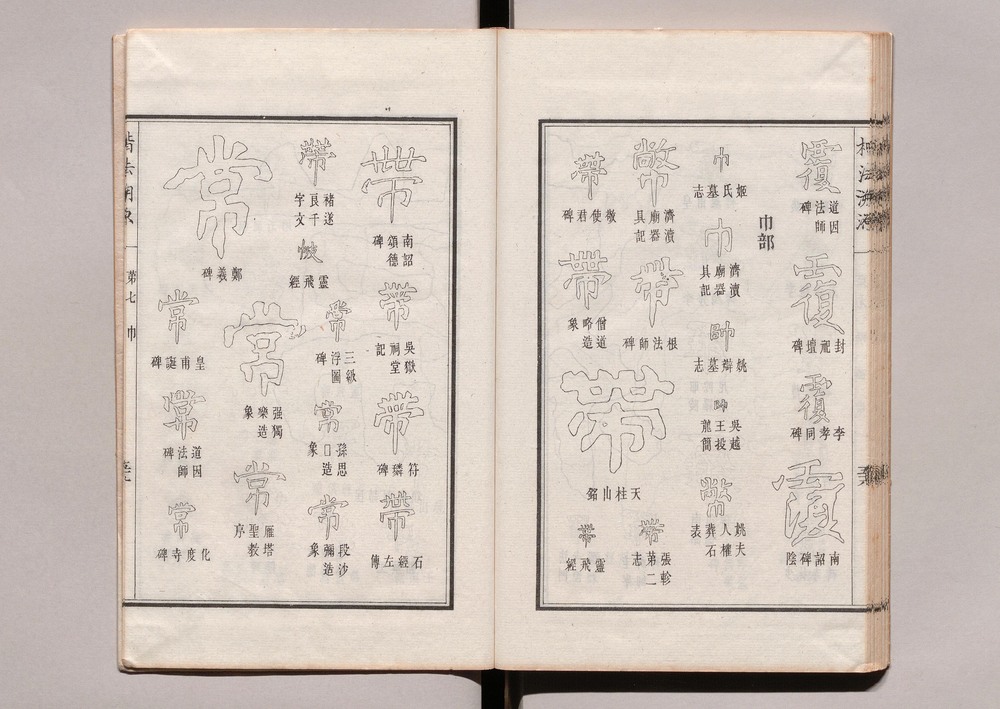 楷法溯源
覆
道因法師碑
覆
封祀壇碑
覆
李孝同碑
覆
南詔碑陰
巾部
巾
姬氏墓志
巾
濟瀆廟器具記
帥
姚辯墓志
帥
吳越王投龍簡
幣
姚夫人權葬石表
幣
濟瀆廟器具記
帶
根法師碑
帶
張軫第二志
帶
敬使君碑
帶
僧道略造象
帶
天柱山銘
帶
靈飛經
帶
南詔德頌碑
帶
吳嶽祠堂記
帶
符璘碑
帶
石經左傳
帶
褚遂良千字文
帔
靈飛經
常
三級浮圖碑
常
孫思□造象
常
段沙彌造象
常
鄭義碑
常
强獨樂造象
常
雁塔聖教序
常
皇甫誕碑
常
道因法師碑
常
化度寺碑
楷法溯源
第七
巾